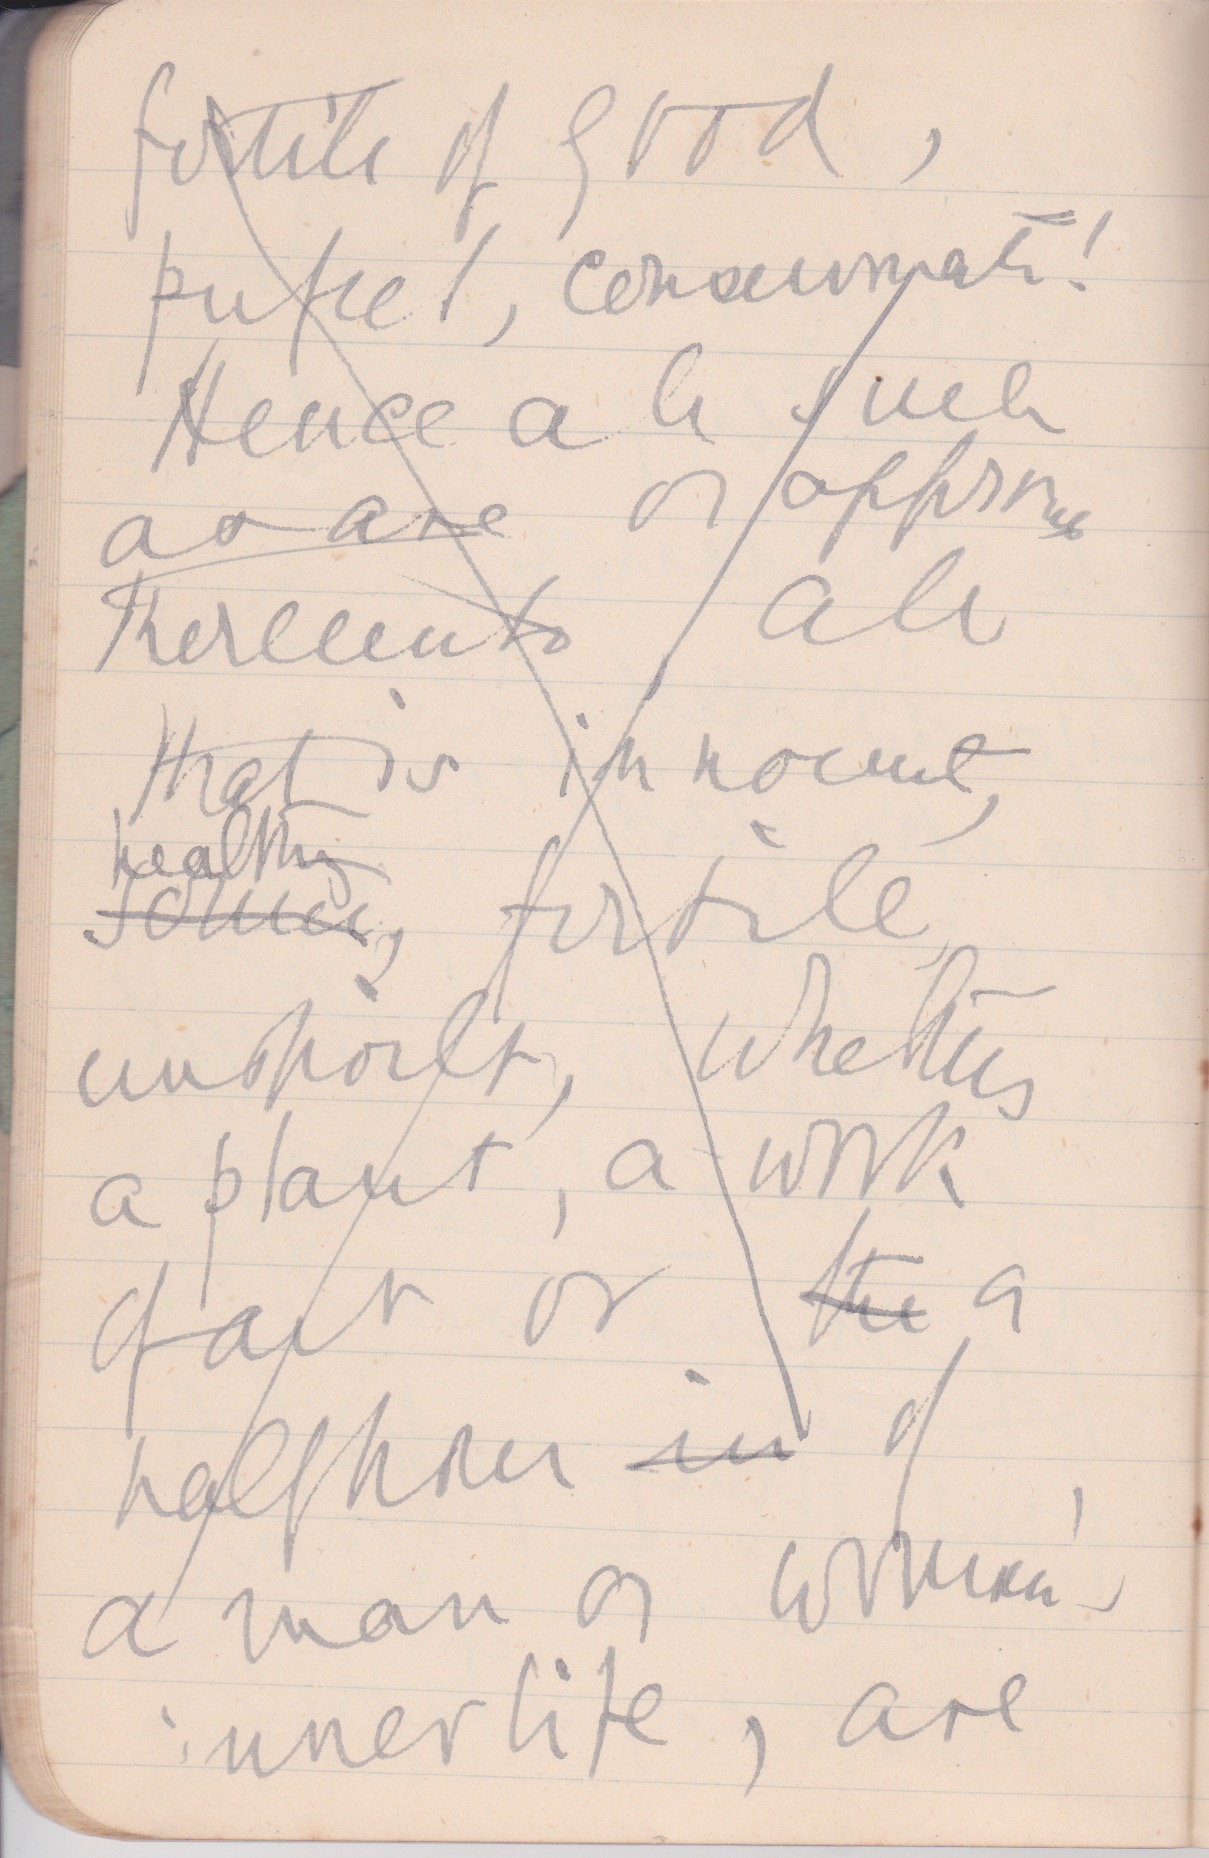 fertile of good,
perfect, consummate!
Hence all such
as are or approx
thereunto all
that is innocent,
healthy
fertile,
unspoilt, whether
a plant, a work
of art or the a
half hour in of
a man or woman's
inner life, are